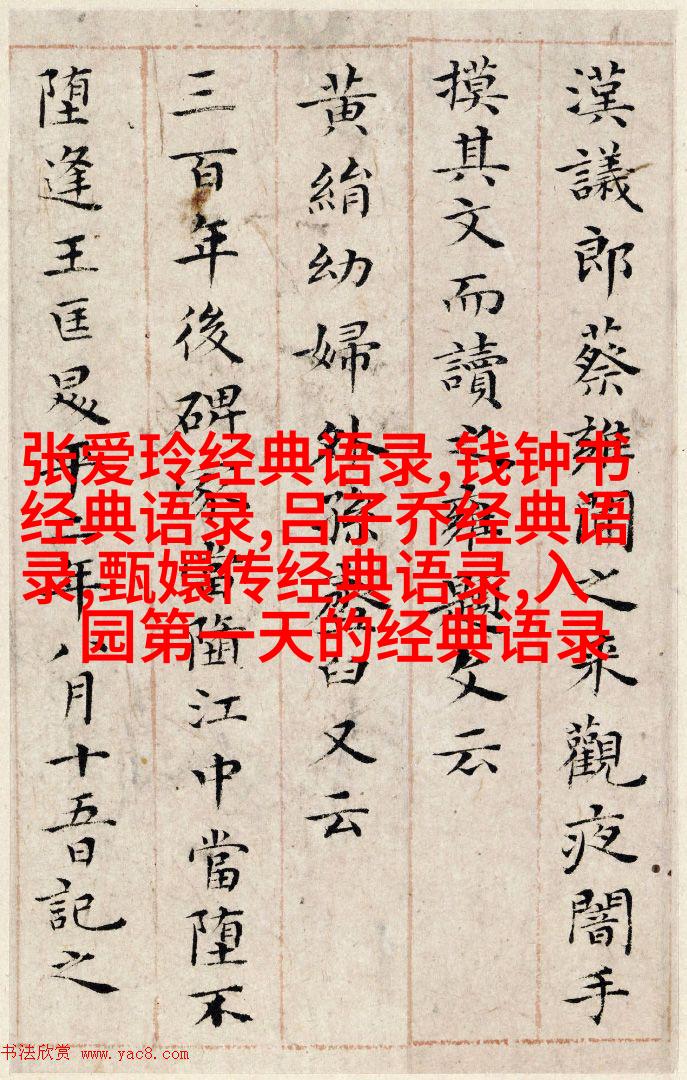 漢議郎蔡雍聞之来觀夜闇手
摸其文而讀之雍題文云
黄絹幼婦外孫齏臼又云
三百年後碑冢當堕江中當堕不
堕逢王匡昇平二年八月十五日記之
张爱玲经典语录,钱钟书
经典语录,吕子乔经典语
录,甄嬛传经典语录,入
园第一天的经典语录
书法欣赏 www.yac8.com